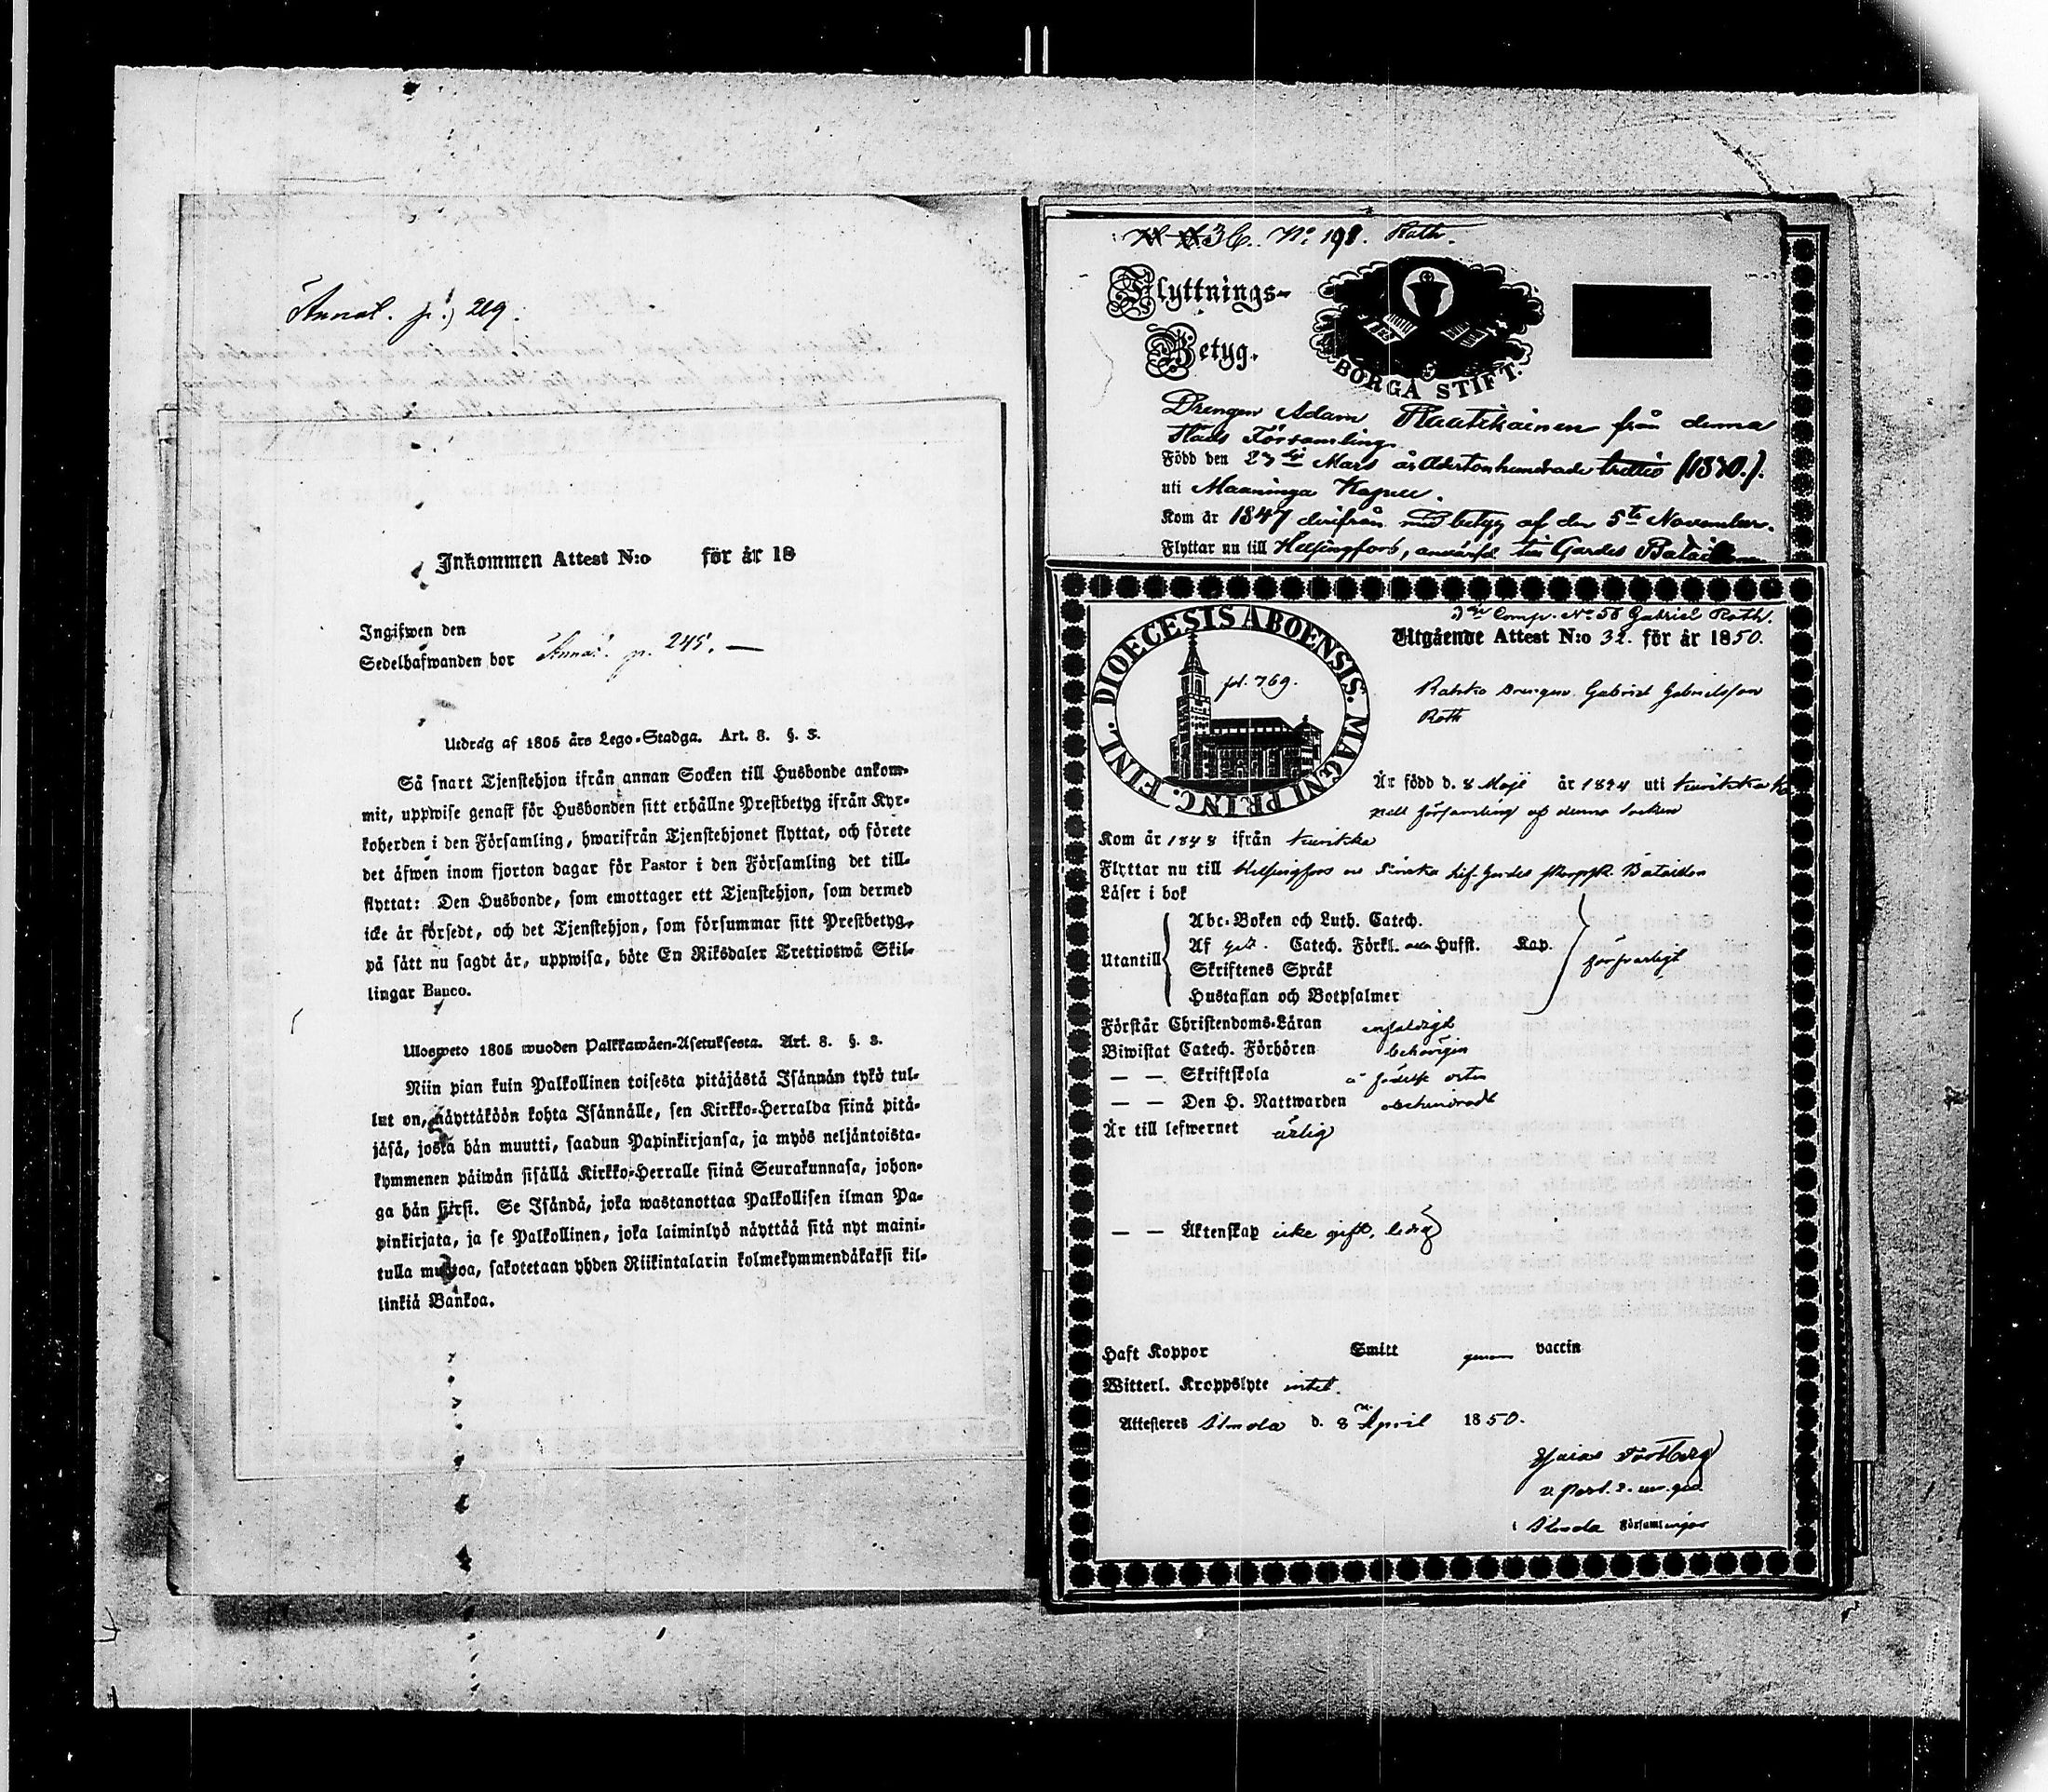 Annal. p. 219.
Inkommen Attest N:o för år 18
Ingifwen den
Sedelhafwanden bor Annal. p. 245. —
Utdrag af 1805 års Lego-Stadga. Art. 8. §. 3.
Så snart Tjenstehjon ifrån annan Socken till Husbonde ankom-
mit, uppwise genast för Husbonden sitt erhållne Prestbetyg ifrån Kyr-
koherden i den Församling, hwarifrån Tjenstehjonet flyttat, och förete
det äfwen inom fjorton dagar för Pastor i den Församling det till-
flyttat: Den Husbonde, som emottager ett Tjenstehjon, som dermed
icke är försedt, och det Tjenstehjon, som försummar sitt Prestbetyg,
på sätt nu sagdt är, uppwisa, böte En Riksdaler Trettiotwå Skil-
lingar Banco.
Ulosweto 1805 wuoden Palkkawäen-Asetuksesta. Art. 8. §. 3.
Niin pian kuin Palkollinen toisesta pitäjästä Isännän tykö tul-
lut on, näyttäköön kohta Isännälle, sen Kirkko-Herralda siinä pitä-
jäsä, josta hän muutti, saadun Papinkirjansa, ja myös neljäntoista-
kymmenen päiwän sisällä Kirkko-Herralle siinä Seurakunnasa, johon-
ga hän siirsi. Se Isändä, joka wastanottaa Palkollisen ilman Pa-
pinkirjata, ja se Palkollinen, joka laiminlyö näyttää sitä nyt maini-
tulla muotoa, sakotetaan yhden Riikintalarin kolmekymmendäkaksi kil-
linkiä Bankoa.
N:o 198. Rath.
Flyttnings-
Betyg.
BORGÅ STIFT.
Drengen Adam Rautiainen från denna
Stads Församling.
Född den 27de Mars år Adertonhundrade trettio (1830.).
uti Maaninga Kapell.
Kom år 1847 derifrån med betyg af den 5te November.
Flyttar nu till Helsingfors, använd till Gardes Bataillon
3ne Comp. No 58 Gabriel Roth.
Utgående Attest N:o 32. för år 1850.
DIOECESIS ABOENSIS. MAGNI PRINC. FINL.
fol. 769.
Drengen Gabriel Gabrielsson
Roth
Är född d. 8 Maji år 1824 uti Kurikka Ka
pell församling af denna socken
Kom år 1848 ifrån Kurikka
Flyttar nu till Helsingfors o Finska Lif Gardes skarpsk. Bataillon
Läser i bok
Utantill
Abc-Boken och Luth. Catech.
Af Catech. Förkl. Hufst. Kap.
Skriftenes Språk
Hustaflan och Botpsalmer
försvarligt
Förstår Christendoms-Läran enfaldigt
Biwistat Catech. Förhören behörigen
— — Skriftskola å födelse orten
— — Den H. Nattwarden obehindradt
Är till lefwernet ärlig
— — Äktenskap icke gift, ledig
Haft Koppor Smitt genom vaccin
Witterl. Kroppslyte intet.
Attesteras Ilmola d. 8 April 1850.
Esaias Tortberg
v. Past.
i Ilmola Församlingar